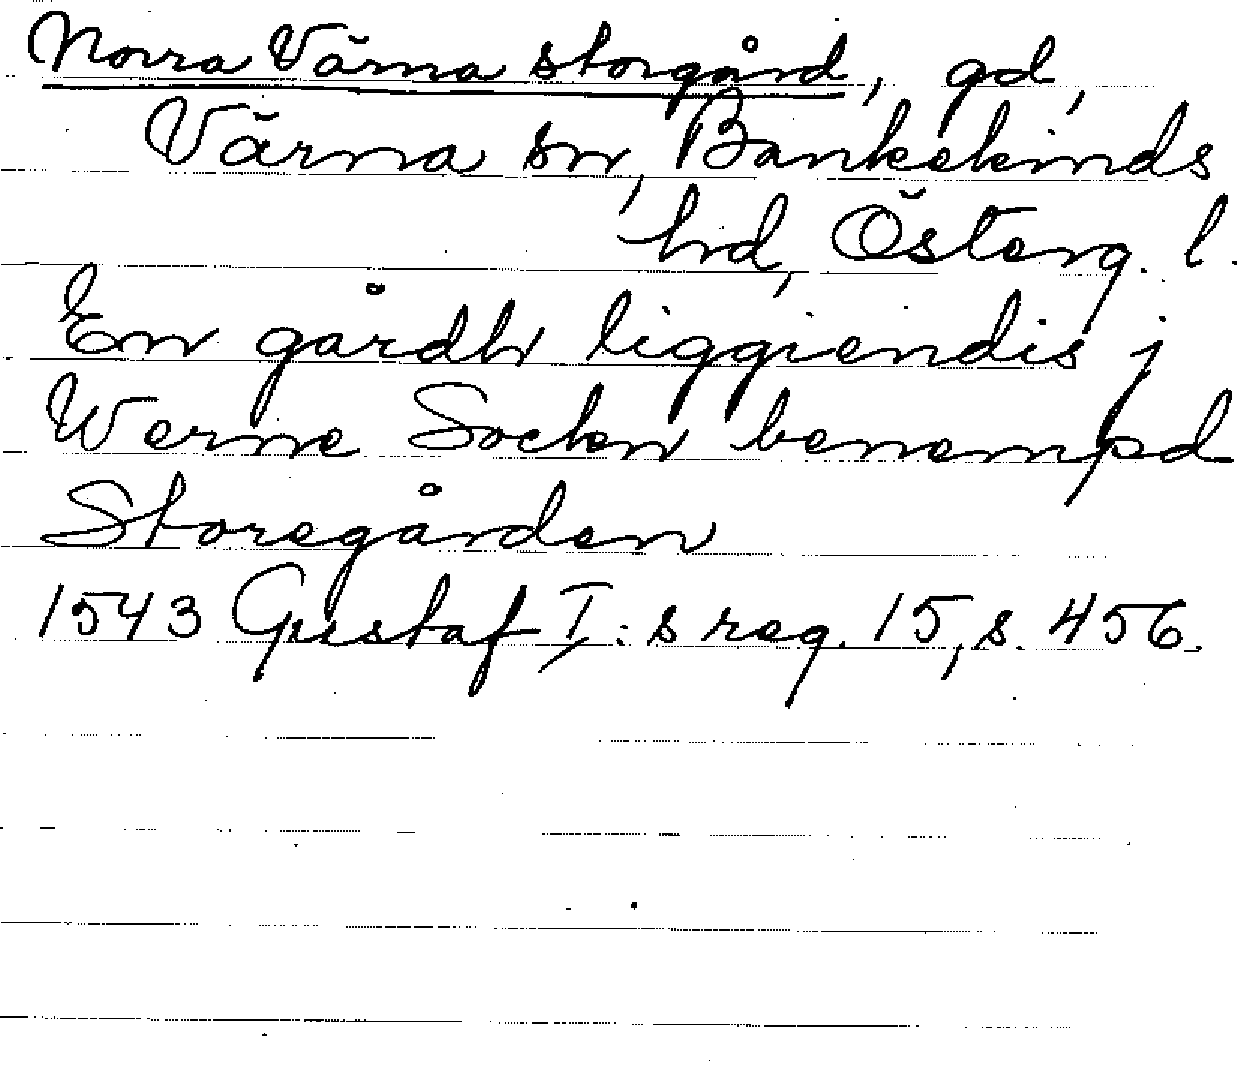 Norra Värna storgård, gd,
Värna sn, Bankekinds
hd, Österg. l.
En gårdh liggiendis j
Werne Socken benempd
Storegården
1543 Gustaf I:s reg. 15, s. 456.